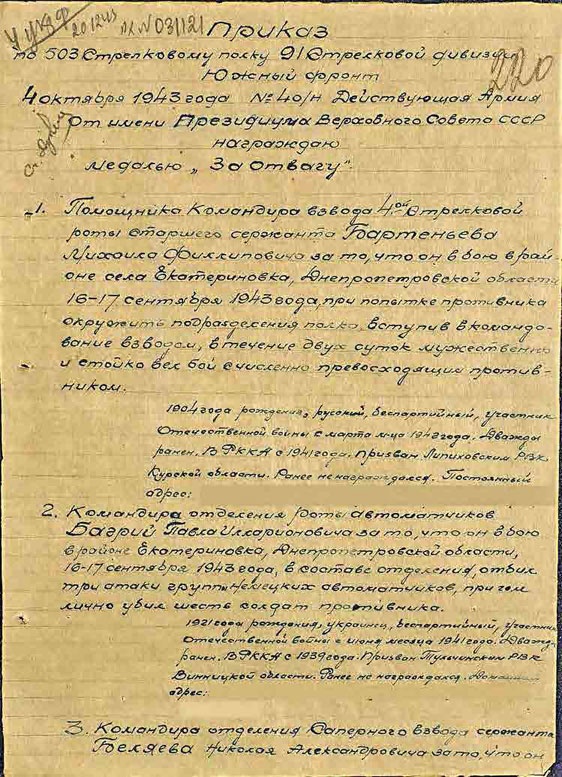 20.12.43 вх N 031121
Приказ
по 503 Стрелковому полку 91 Стрелковой дивизии
Южный фронт
220
4 октября 1943 года № 40/н Действующая Армия
От имени Президиума Верховного Совета СССР
награждаю
медалью „За отвагу".
1. Помощника Командира взвода 4ой Стрелковой
роты Старшего сержанта Бартеньева
Михаила Филлиповича за то, что он в бою в рай
оне села Екатериновка, Днепропетровской области
16-17 сентября 1943 года, при попытке противника
окружить подразделения полка, вступив в командо-
вание взводом, в течение двух суток мужественно
и стойко вел бой с численно превосходящим против-
ником.
1904 года рождения, русский, беспартийный, участник
Отечественной войны с марта м-ца 1943 года. Дважды
ранен. В РККА с 1941 года. Призван РВК
Курской области. Ранее не награждался. Постоянный
адрес:
2. Командира отделения роты автоматчиков
Багрий Павла Илларионовича за то, что он в бою
в районе Екатериновка, Днепропетровской области,
16-17 сентября 1943 года, в составе отделения, отбил
три атаки групп немецких автоматчиков, при чем
лично убил шесть солдат противника.
1921 года рождения, украинец, беспартийный, участник
Отечественной войны с июня месяца 1941 года. Дважды
ранен. В РККА с 1939 года. Призван Тульчинским РВК
Винницкой области. Ранее не награждался. Домашний
адрес:
3. Командира отделения Саперного взвода сержанта
Беляева Николая Александровича за то, что он